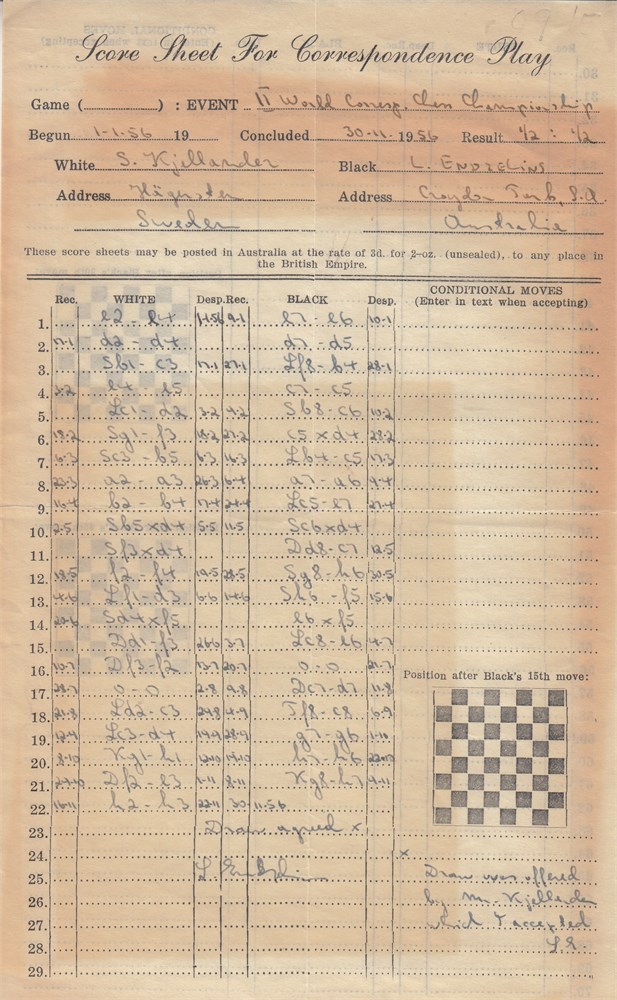 Score Sheet For Correspondence Play
Game (............) : EVENT II World Corresp. Chess Championship
Begun 1-1-56 19 Concluded 30-11- 1956 Result ½ : ½
White S. Kjellander Black L. ENDZELINS
Address Hägersten Address Croydon Park, S.A.
Sweden Australia
These score sheets may be posted in Australia at the rate of 3d. for 2-oz. (unsealed), to any place in
the British Empire.
Rec. WHITE Desp. Rec. BLACK Desp. CONDITIONAL MOVES
(Enter in text when accepting)
1. e2 - e4 1-1-56 9-1 e7 - e6 10-1
2. 17-1 d2 - d4 d7 - d5
3. Sb1 - c3 17-1 27-1 Lf8 - b4 28-1
4. 3-2 e4 - e5 c7 - c5
5. Lc1 - d2 3-2 9-2 Sb8 - c6 10-2
6. 18-2 Sg1 - f3 18-2 27-2 c5 x d4 28-2
7. 6-3 Sc3 - b5 6-3 16-3 Lb4 - c5 17-3
8. 23-3 a2 - a3 26-3 8-4 a7 - a6 9-4
9. 16-4 b2 - b4 17-4 24-4 Lc5 - e7 27-4
10. 2-5 Sb5xd4 5-5 11-5 Sc6xd4
11. Sf3xd4 Dd8 - c7 12-5
12. 19-5 f2 - f4 19-5 28-5 Sg8 - h6 30-5
13. 4-6 Lf1 - d3 6-6 14-6 Sh6 - f5 15-6
14. 20-6 Sd4xf5 e6 x f5
15. Dd1 - f3 26-6 3-7 Lc8 - e6 4-7
16. 10-7 Df3 - f2 13-7 20-7 0 - 0 21-7
Position after Black's 15th move:
17. 28-7 0 - 0 2-8 9-8 Dc7 - d7 11-8
18. 21-8 Ld2 - c3 24-8 4-9 Tf8 - c8 6-9
19. 12-9 Lc3 - d4 14-9 28-9 g7 - g6 1-10
20. 8-10 Kg1 - h1 12-10 14-10 h7 - h6 22-10
21. 24-10 Df2 - e3 1-11 8-11 Kg8 - h7 9-11
22. 16-11 h2 - h3 22-11 30-11-56
23. Draw agreed x
24. x
25. L Endzelins Draw was offered
26. by Mr. Kjellander
27. which I accepted
28. L.E.
29.